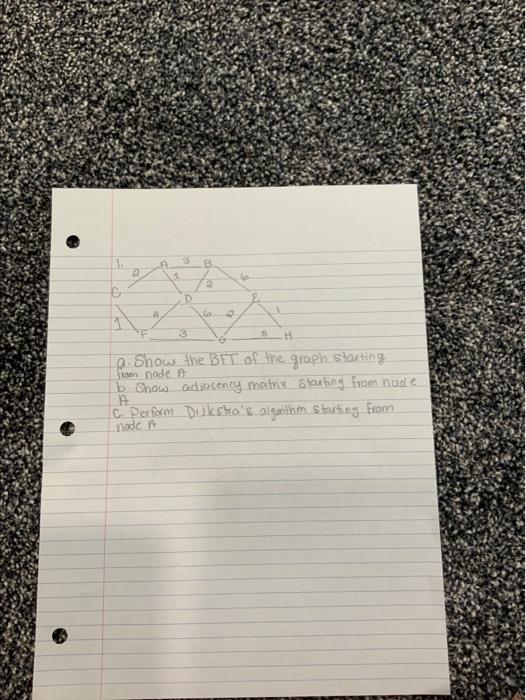 1.
A 3 B
2 1 2 6
C D E
1 4 6 2 1
F 3 G 5 H
a. Show the BFT of the graph starting
from node A
b Show adjacency matrix starting from node
A
C. Perform Dijkstra's algorithm starting from
node A